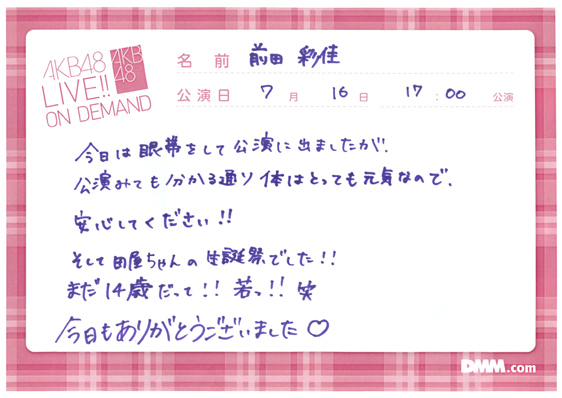 AKB48
LIVE!!
ON DEMAND
AKB
48
名前 前田 彩佳
公演日 7月 16日 17:00 公演
今日は眼帯をして公演に出ましたが、
公演みても分かる通り体はとっても元気なので、
安心してください!!
そして田屋ちゃんの生誕祭でした!!
まだ14歳だって!!若っ!!笑
今日もありがとうございました♡
DMM.com